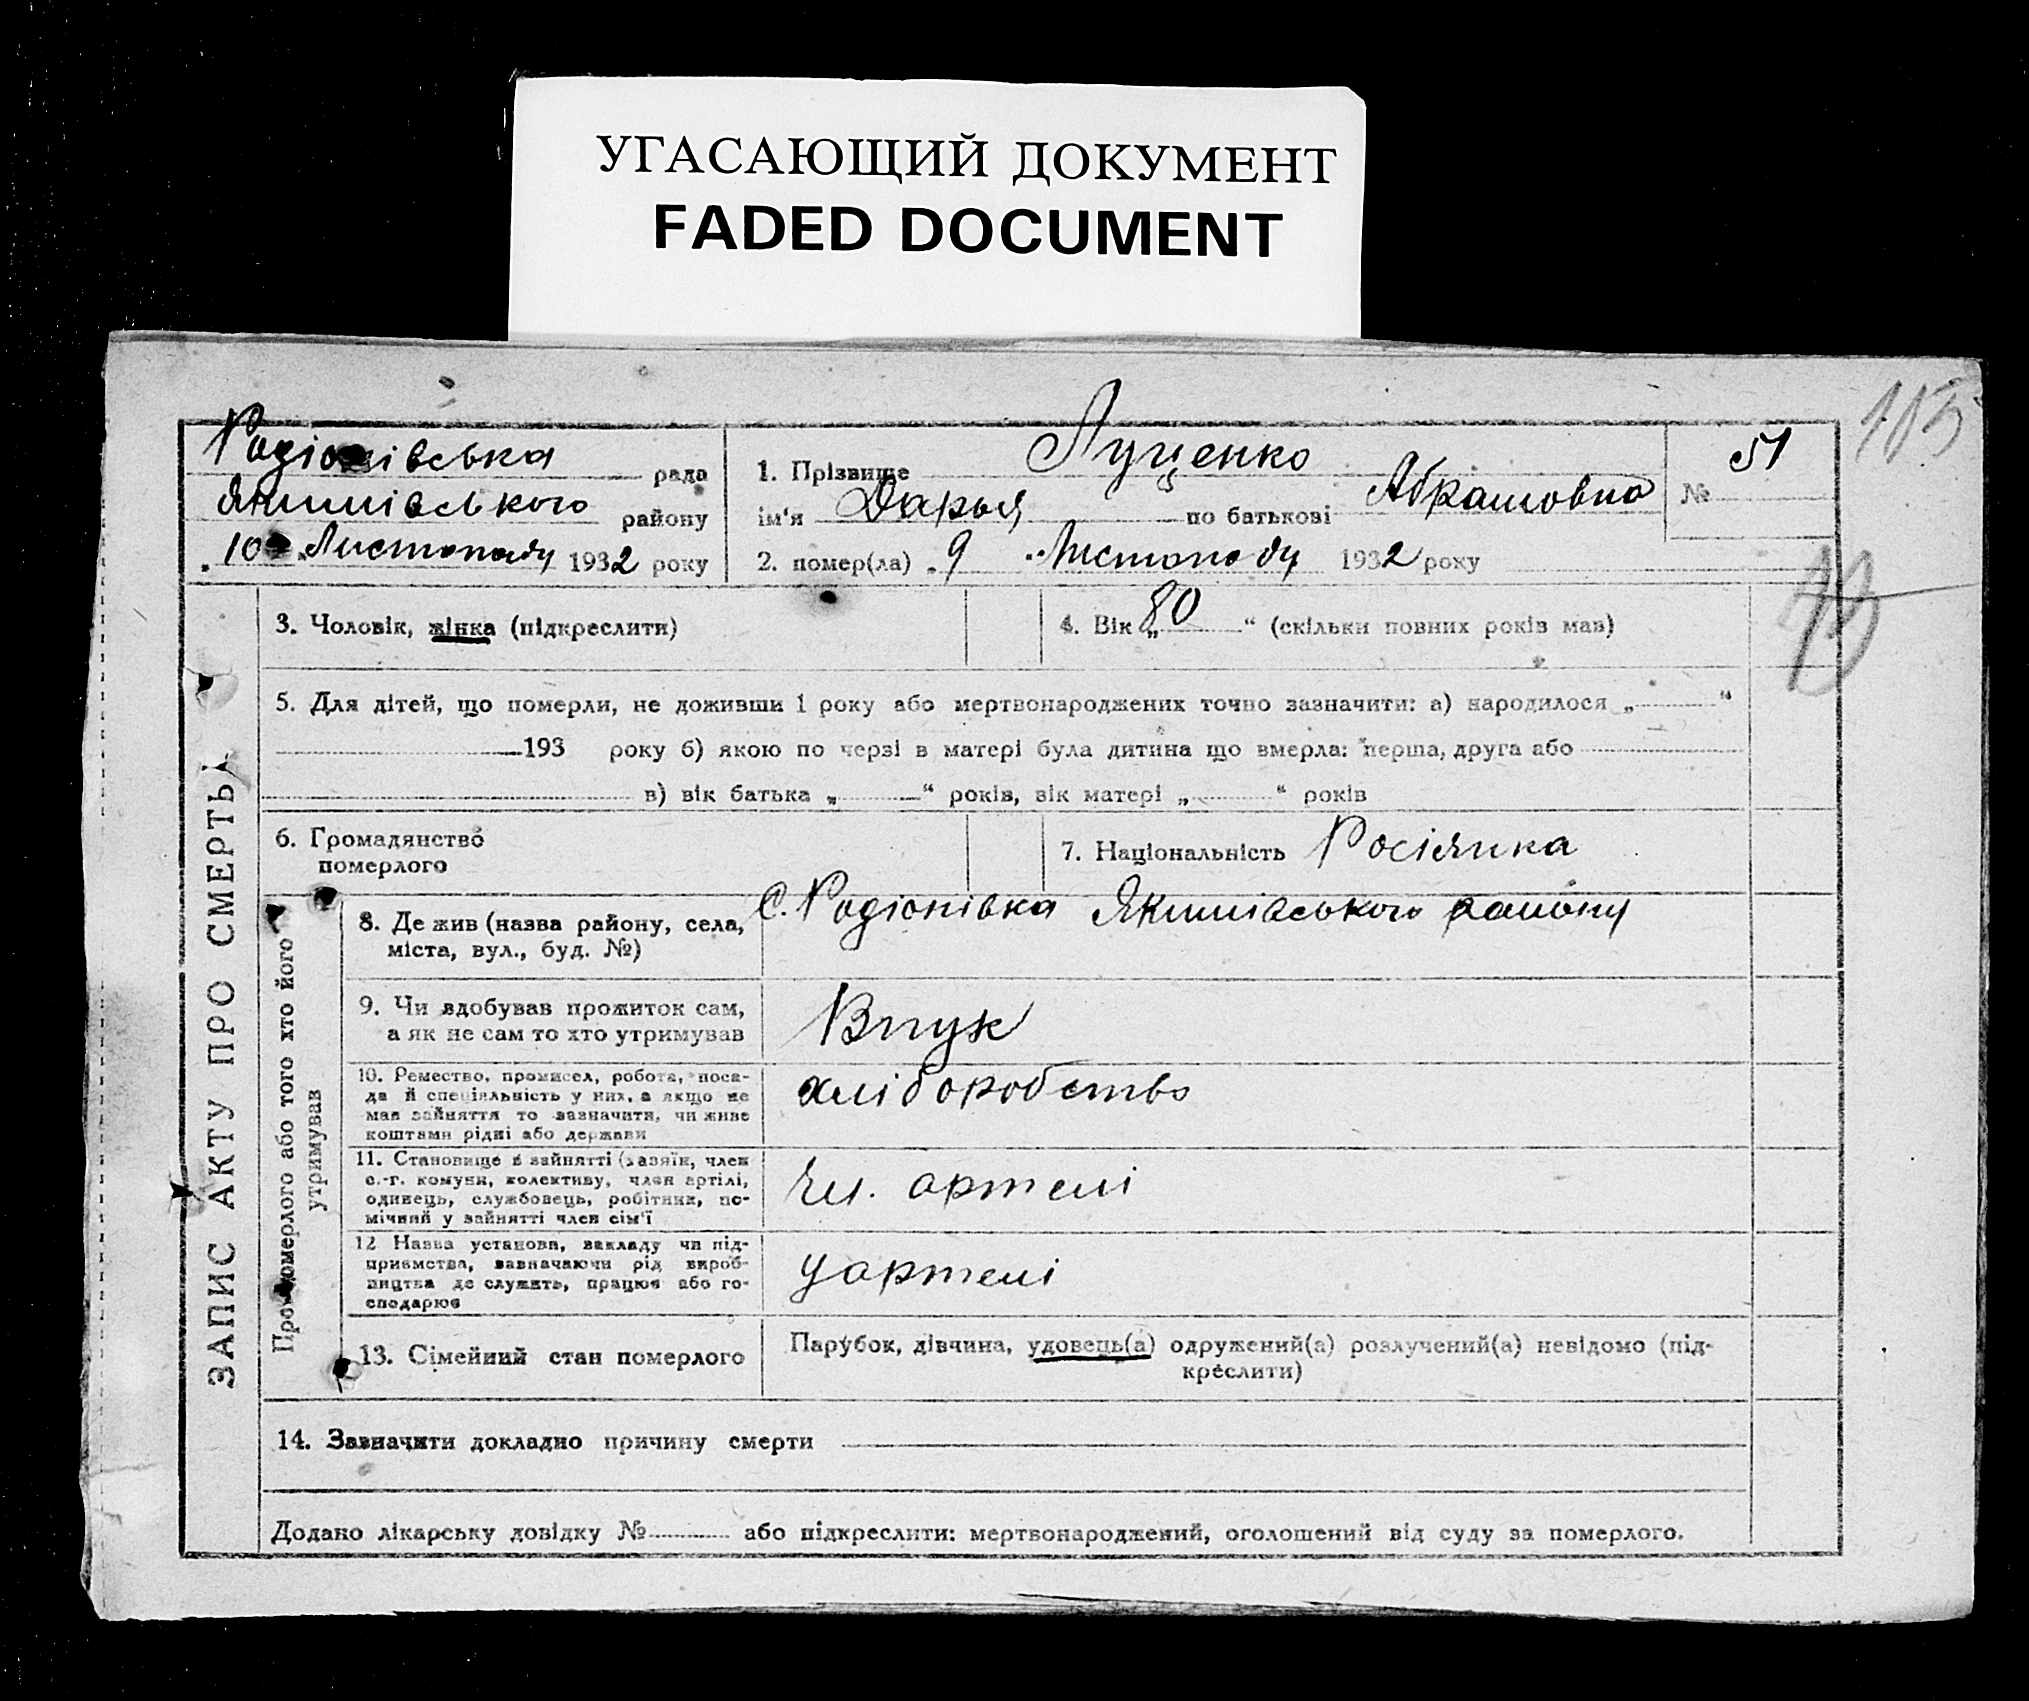 УГАСАЮЩИЙ ДОКУМЕНТ
FADED DOCUMENT
Родіонівська рада
Якимівського району
10 Листопаду 1932 року
1. Прізвище Луценко
ім'я Дарья по батькові Абрамовна
№ 51
2. помер(ла) „9 " Листопаду 1932 року
3. Чоловік, жінка (підкреслити)
4. Вік „80" (скільки повних років мав)
5. Для дітей, що померли, не доживши 1 року або мертвонароджених точно зазначити: а) народилося „ "
193 року б) якою по черзі в матері була дитина що вмерла: перша, друга або
в) вік батька „ " років, вік матері „ " років
6. Громадянство
померлого
7. Національність Росіянка
ЗАПИС АКТУ ПРО СМЕРТЬ
Про померлого або того хто його
утримував
8. Де жив (назва району, села,
міста, вул., буд. №)
С. Родіонівка Якимівського району
9. Чи здобував прожиток сам,
а як не сам то хто утримував
Внук
10. Ремество, промисел, робота, поса-
да й спеціяльність у них, а якщо не
мав зайняття то зазначити, чи живе
коштами рідні або держави
хліборобство
11. Становище в зайнятті (хазяїн, член
с.-г. комуни, колективу, член артілі,
одинець, службовець, робітник, по-
мічний у зайнятті член сім'ї
Чл. артелі
12 Назва установи, закладу чи під-
приємства, зазначаючи рід вироб-
ництва де служить, працює або го-
сподарює
у артелі
13. Сімейний стан померлого
Парубок, дівчина, удовець(а) одружений(а) розлучений(а) невідомо (під-
креслити)
14. Зазначити докладно причину смерти
Додано лікарську довідку № або підкреслити: мертвонароджений, оголошений від суду за померлого.